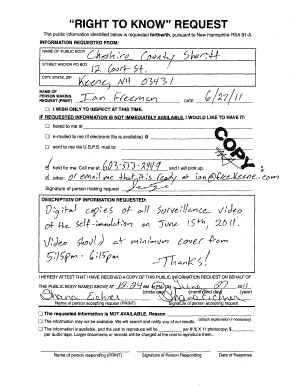 "RIGHT TO KNOW" REQUEST
The public information identified below is requested forthwith, pursuant to New Hampshire RSA 91-A.
INFORMATION REQUESTED FROM:
NAME OF PUBLIC BODY
Cheshire County Sheriff
STREET AND/OR PO BOX
12 Court St.
CITY, STATE, ZIP
Keene, NH 03431
NAME OF PERSON MAKING REQUEST (PRINT) Ian Freeman DATE 6/27/11
☐ I WISH ONLY TO INSPECT AT THIS TIME.
IF REQUESTED INFORMATION IS NOT IMMEDIATELY AVAILABLE, I WOULD LIKE TO HAVE IT:
☐ faxed to me at
☐ e-mailed to me (if electronic file is available) @
☐ sent to me via U.S.P.S. mail to:
COPY
held for me. Call me at 603-513-2449 and I will pick up.
other: or email me that it is ready at ian@freekeene.com
Signature of person making request
DESCRIPTION OF INFORMATION REQUESTED:
Digital copies of all surveillance video
of the self-immolation on June 15th, 2011.
Video should at minimum cover from
5:15pm - 6:15pm
-Thanks!
I HEREBY ATTEST THAT I HAVE RECEIVED A COPY OF THIS PUBLIC INFORMATION REQUEST ON BEHALF OF
THE PUBLIC BODY NAMED ABOVE AT June 27
(circle one) (month and day) (year)
Name of person accepting request (PRINT) Signature of person accepting request
☐ The requested information is NOT AVAILABLE. Reason
(attach explanation if necessary)
☐ The information may not be available. We will search and notify you of our results.
☐ The information is available, and the cost to reproduce will be per 8½ X 11 photocopy; $
per audio tape. Larger documents or records will be charged at the cost to reproduce them.
Name of person responding (PRINT) Signature of Person Responding Date of Response